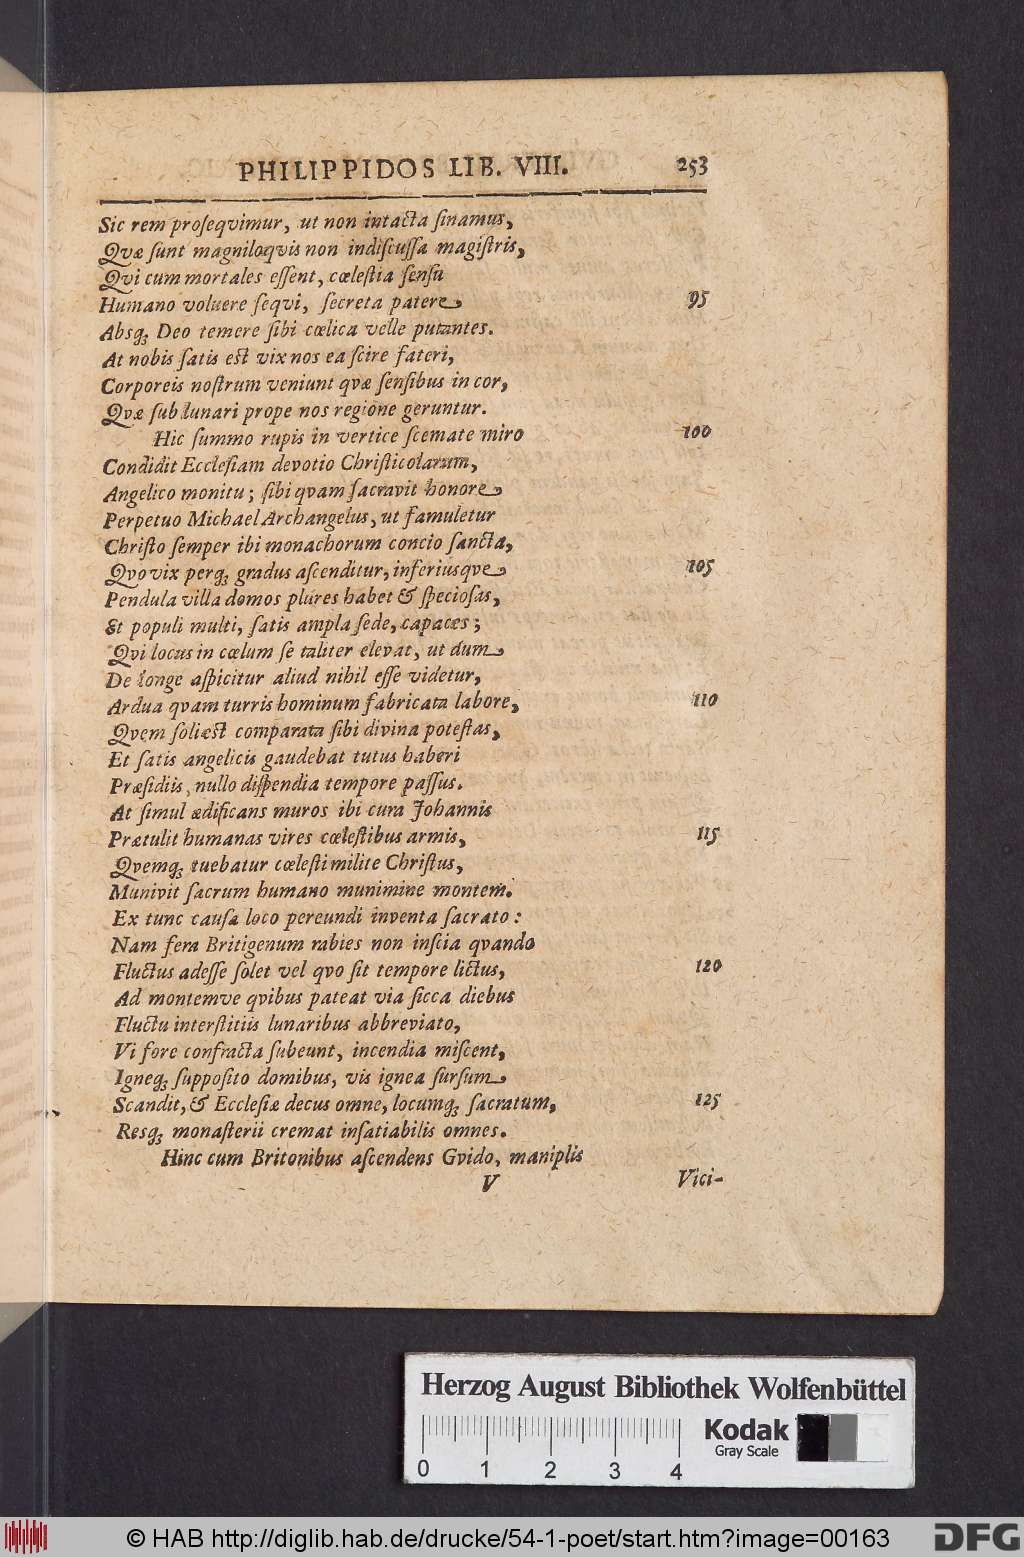 PHILIPPIDOS LIB. VIII. 253
Sic rem proſeqvimur, ut non intacta ſinamus,
Qvæ ſunt magniloqvis non indiſcuſſa magiſtris,
Qvi cum mortales eſſent, cœleſtia ſenſu
Humano voluere ſeqvi, ſecreta patere 95
Absq; Deo temere ſibi cœlica velle putantes.
At nobis ſatis est vix nos ea ſcire fateri,
Corporeis noſtrum veniunt qvæ ſenſibus in cor,
Qvæ ſub lunari prope nos regione geruntur.
Hic ſummo rupis in vertice ſcemate miro 100
Condidit Eccleſiam devotio Chriſticolarum,
Angelico monitu; ſibi qvam ſacravit honore
Perpetuo Michael Archangelus, ut famuletur
Chriſto ſemper ibi monachorum concio ſancta,
Qvo vix perq; gradus aſcenditur, inferiusqve 105
Pendula villa domos plures habet & ſpecioſas,
Et populi multi, ſatis ampla ſede, capaces;
Qvi locus in cœlum ſe taliter elevat, ut dum
De longe aſpicitur aliud nihil eſſe videtur,
Ardua qvam turris hominum fabricata labore, 110
Qvem ſoli æst comparata ſibi divina poteſtas,
Et ſatis angelicis gaudebat tutus haberi
Præſidiis, nullo diſpendia tempore paſſus.
At ſimul ædificans muros ibi cura Johannis
Prætulit humanas vires cœleſtibus armis, 115
Qvemq; tuebatur cœleſti milite Chriſtus,
Munivit ſacrum humano munimine montem.
Ex tunc cauſa loco pereundi inventa ſacrato:
Nam fera Britigenum rabies non inſcia qvando
Fluctus adeſſe ſolet vel qvo ſit tempore lictus, 120
Ad montemve qvibus pateat via ſicca diebus
Fluctu interſtitiis lunaribus abbreviato,
Vi fore confracta ſubeunt, incendia miſcent,
Igneq; ſuppoſito domibus, vis ignea ſurſum
Scandit, & Eccleſiæ decus omne, locumq; ſacratum, 125
Resq; monaſterii cremat inſatiabilis omnes.
Hinc cum Britonibus aſcendens Gvido, maniplis
V Vici-
Herzog August Bibliothek Wolfenbüttel
Kodak
Gray Scale
0 1 2 3 4
© HAB http://diglib.hab.de/drucke/54-1-poet/start.htm?image=00163
DFG